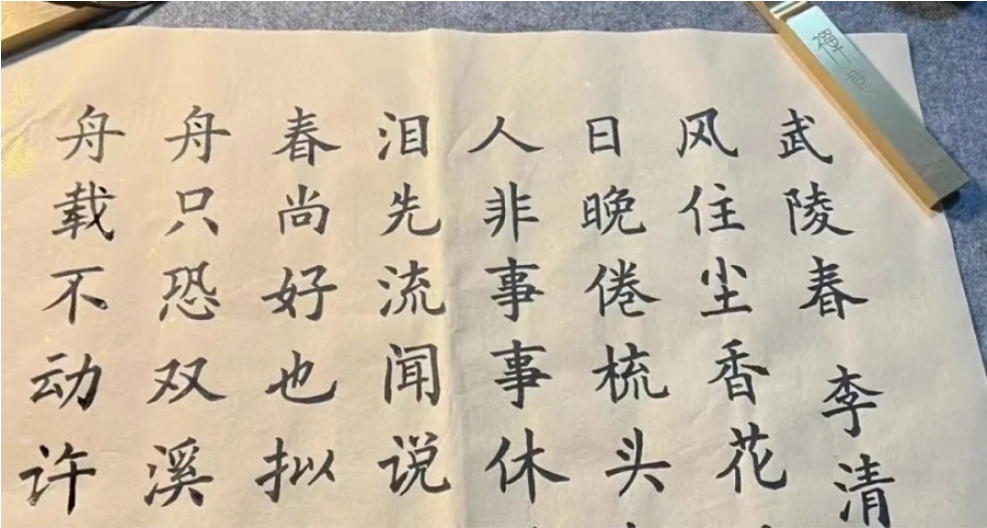 武陵春李清
风住尘香花
日晚倦梳头
人非事事休
泪先流闻说
春尚好也拟
舟只恐双溪
舟载不动许